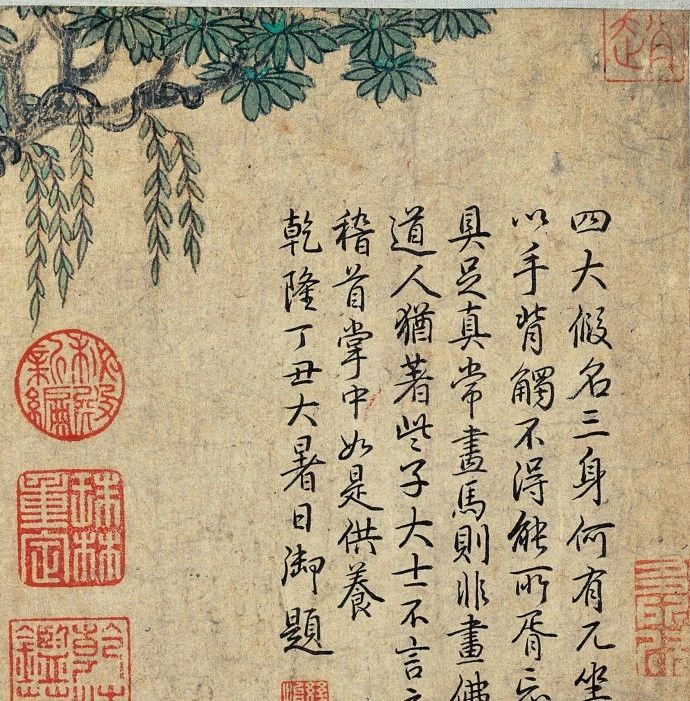 四大假名三身何有兀坐
以手背觸不得能所胥忘
具足真常畫馬則非畫佛
道人猶著些子大士不言
稽首掌中如是供養
乾隆丁丑大暑日御題
秘殿新編
珠林重定